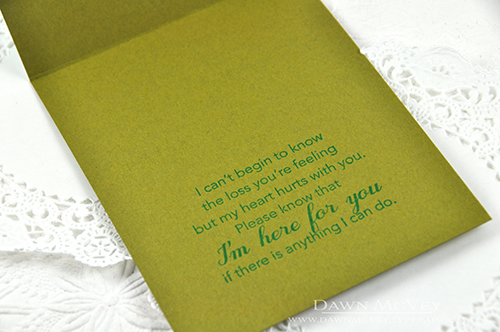 I can't begin to know
the loss you're feeling
but my heart hurts with you.
Please know that
I'm here for you
if there is anything I can do.
DAWN